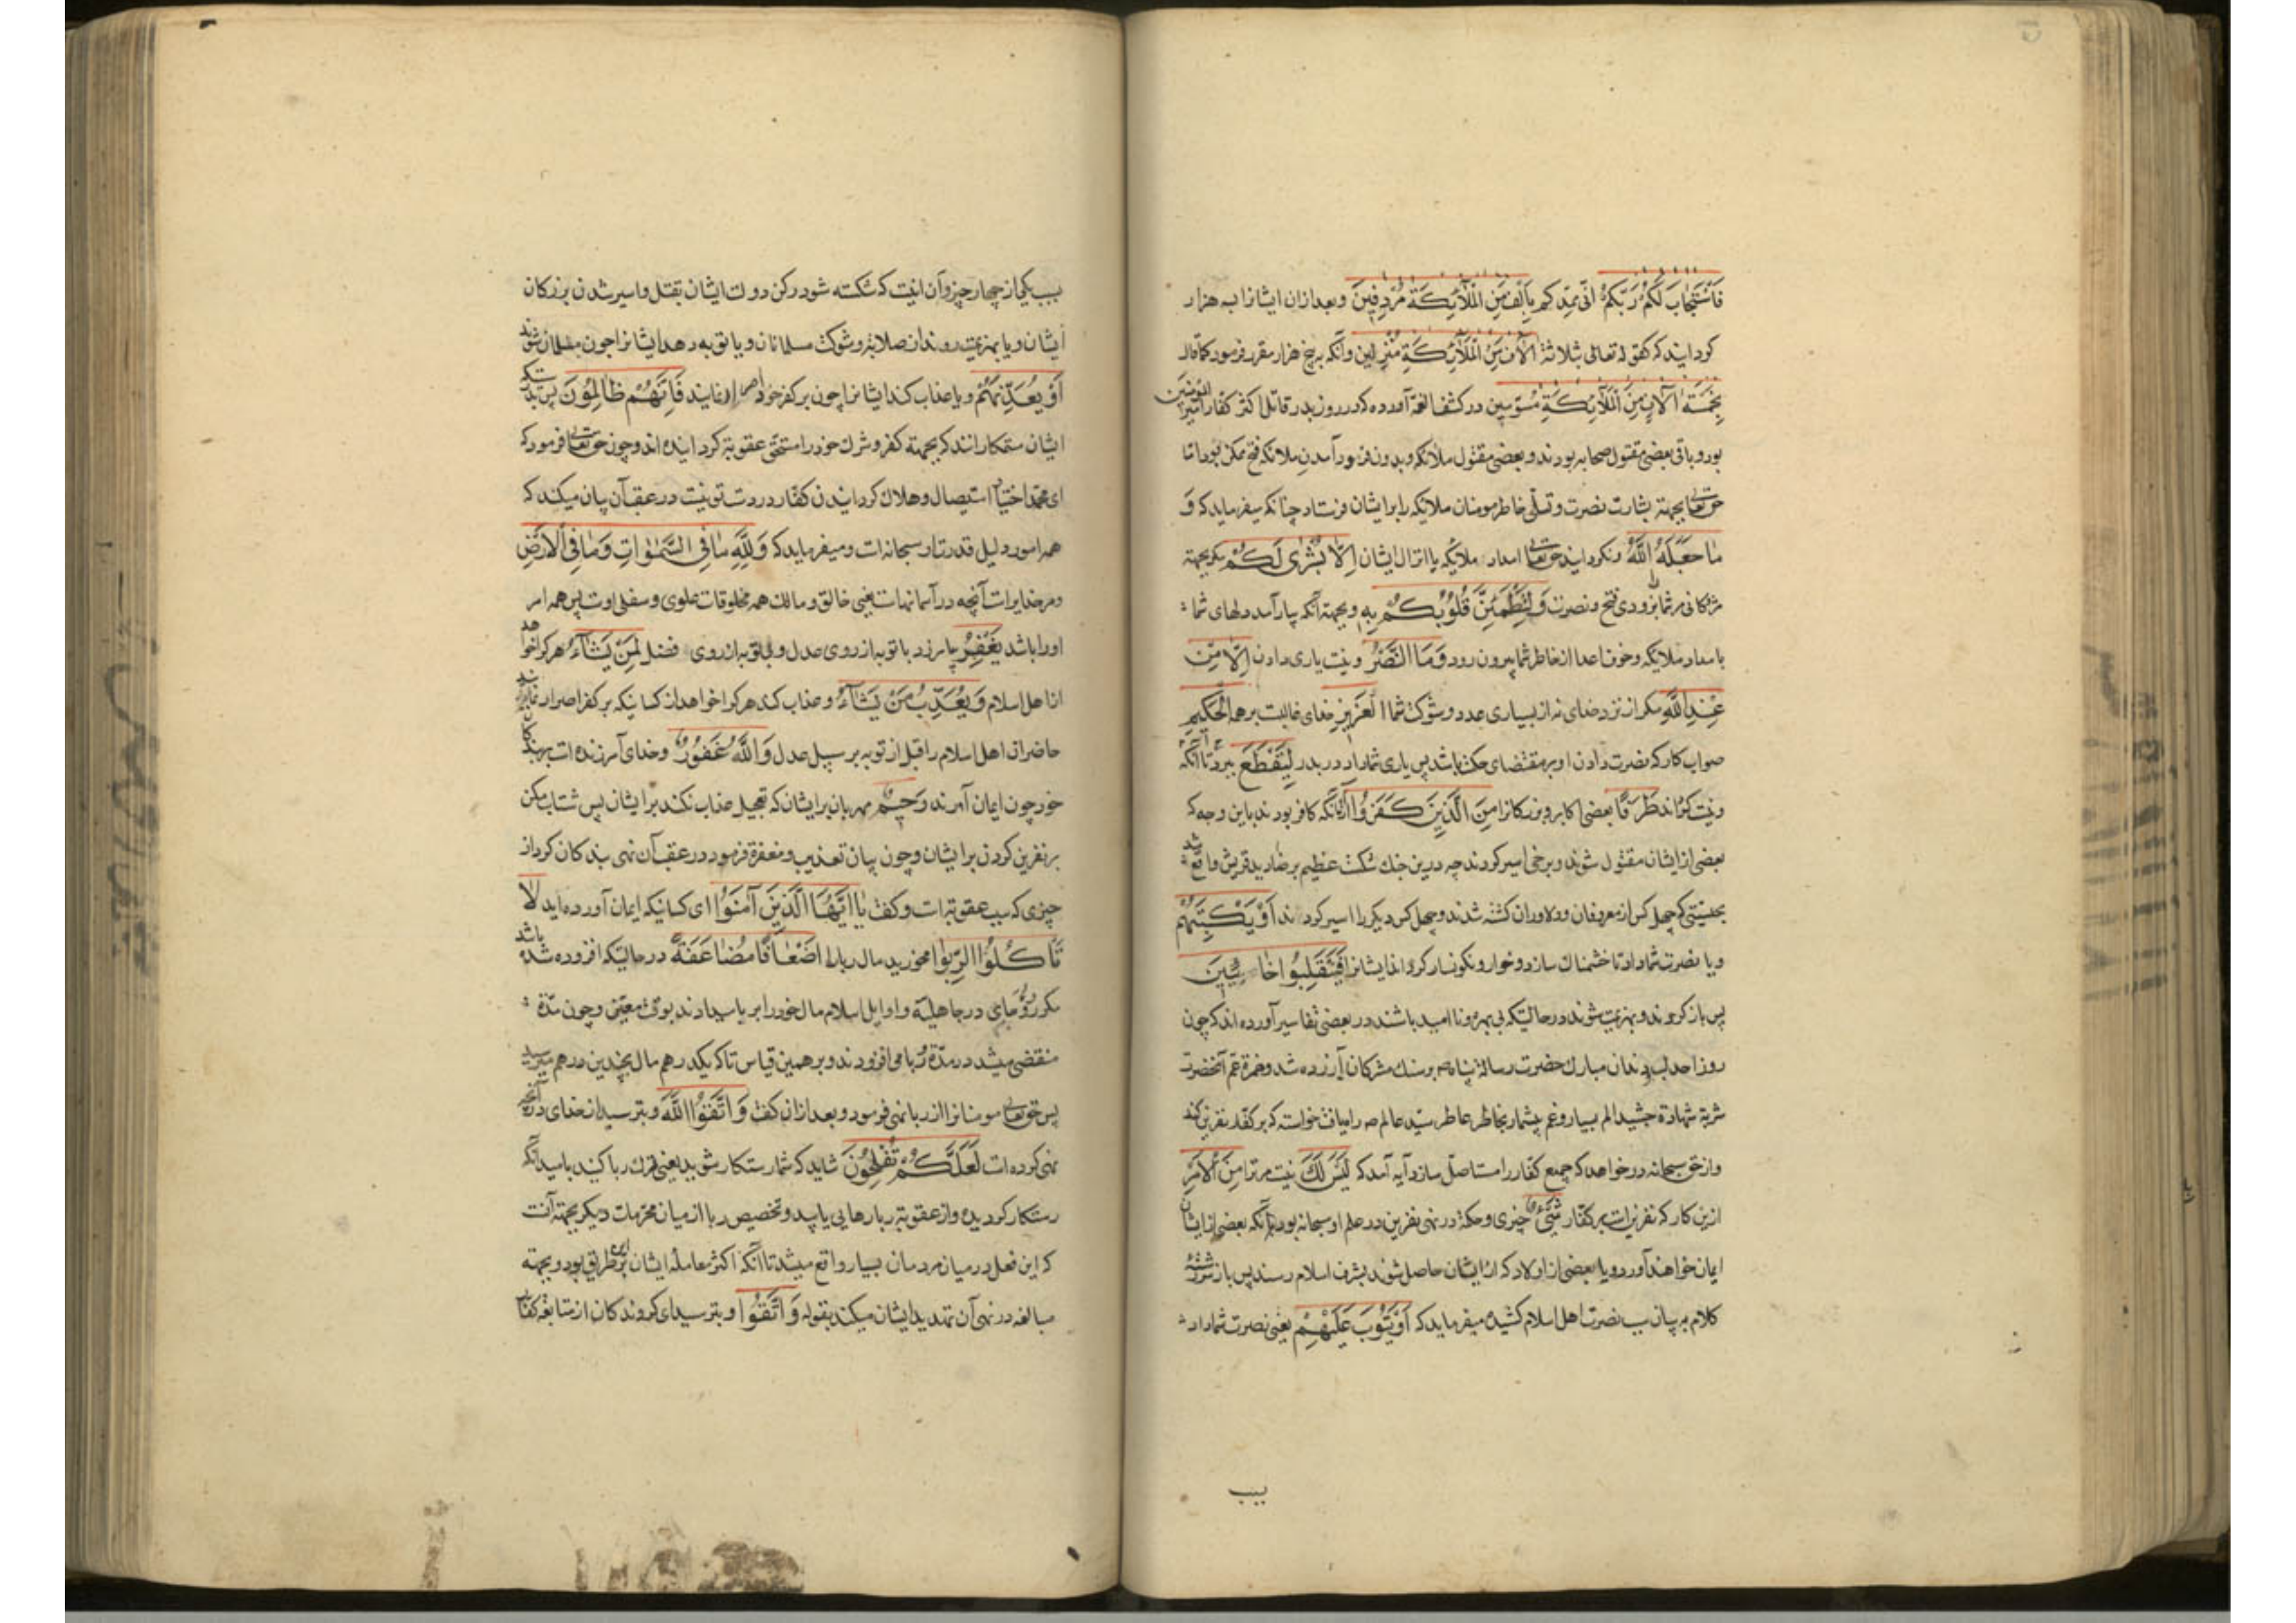 فَاسْتَجَابَ لَكُمْ رَبُّكُمْ انّی ممدّکم بِاَلْفٍ مِنَ الْمَلَآئِكَةِ مُرْدِفِينَ وبعدازان ایشانرا بسه هزار
کردایند که کقوله تعالی بثلاثة آلَافٍ مِنَ الْمَلَآئِكَةِ مُنْزَلین وآنکه بر پنج هزار مقرر فرمود کماقال
بِخَمْسَةِ آلَافٍ مِنَ الْمَلَآئِكَةِ مُسَوّمین در کشف الغمّه آورده که در روز بدر قاتل اکثر کفار امیرالمؤمنین
بود وباقی بعضی مقتول صحابه بودند وبعضی مقتول ملائکه وبدون فرود آمدن ملائکه فتح ممکن بود امّا
حقتعالی بجهتة بشارت نصرت وتسلّی خاطر مومنان ملایکه را برایشان فرستاد چنانکه میفرماید که وَ
مَا جَعَلَهُ اللّٰهُ ونکردایند حقتعالی امداد ملایکه یا انزال ایشان اِلَّا بُشْرٰی لَكُمْ مکر بجهتة
مژدکانی مر شما بزودی فتح ونصرت وَلِتَطْمَئِنَّ قُلُوبُكُمْ بِهِ وبجهتة آنکه بیارآمد دلهای شما
بامداد ملایکه وخوف اعدا از خاطر شما بیرون رود وَمَا النَّصْرُ ونیست یاری دادن اِلَّا مِنْ
عِنْدِ اللّٰهِ مکر از نزد خدای نه از بسیاری عدد وشوکت شما الْعَزِيزِ خدای غالبست بر همه الْحَكِيمِ
صواب کار که نصرت دادن او بر مقتضای حکمت باشد پس یاری شما داد در بدر لِيَقْطَعَ ببرد تا آنکه
ونیست کرداند طَرَفًا بعضی اکابر وبزرکانرا مِنَ الَّذِينَ كَفَرُوا ازآنانکه کافر بودند باین وجه که
بعضی از ایشان مقتول شوند وبرخی اسیر کردند چه درین جنك شکست عظیم بر صنادید قریش واقع شد
بحیثیتی که چهل کس از معروفان ودلاوران کشته شدند وچهل کس دیکر را اسیر کردند اَوْ يَكْبِتَهُمْ
ویا نصرت شما داد تا خشمناك سازد وخوار ونکونسار کرداند ایشانرا فَيَنْقَلِبُوا خَائِبِينَ
پس باز کردند وبهزیمت شوند درحالتیکه بی بهره ونا امید باشند در بعضی تفاسیر آورده اند که چون
روز احد لب دندان مبارك حضرت رسالة پناه صه بر سنك مشرکان آزرده شد وحمزة عمّ آنحضرت
شربة شهادة چشید الم بسیار وغم بیشمار بخاطر عاطر سیّد عالم صه راه یافت خواست که بر کفّار نفرین کند
واز حق سبحانه درخواهد که جمیع کفّار را مستاصل سازد آیه آمد که لَيْسَ لَكَ نیست مر ترا مِنَ الْاَمْرِ
ازین کار که نفرینست بر کفّار شَيْءٌ چیزی وحکمة در نهی نفرین در علم او سبحانه بود بآنکه بعضی از ایشان
ایمان خواهند آورد ویا بعضی از اولاد که از ایشان حاصل شوند بشرف اسلام رسند پس باز سررشتهٔ
کلام به بیان سبب نصرت اهل اسلام کشیده میفرماید که اَوْ يَتُوبَ عَلَيْهِمْ یعنی نصرت شما داد
سبب
سبب یکی از چهار چیز وآن اینست که شکسته شود رکن دولت ایشان بقتل واسیر شدن بزرکان
ایشان ویا بهزیمت روند از صلابة وشوکت مسلمانان ویا توبه دهد ایشانرا چون مسلمان شوند
اَوْ يُعَذِّبَهُمْ ویا عذاب کند ایشانرا چون بر کفر خود اصرار نمایند فَاِنَّهُمْ ظَالِمُونَ پس بدرستیکه
ایشان ستمکارانند که بجهتة کفر وشرك خودرا مستحق عقوبة کردایند‌ه اند وچون حقتعالی فرمود که
ای محمّد اختیار استیصال وهلاك کردایندن کفّار در دست تو نیست در عقب آن بیان میکند که
همه امور دلیل قدرت او سبحانه است ومیفرماید که وَلِلّٰهِ مَا فِی السَّمٰوَاتِ وَمَا فِی الْاَرْضِ
ومر خدایراست آنچه در آسمانهاست یعنی خالق ومالك همه مخلوقات علوی وسفلی اوست پس همه امر
اورا باشد يَغْفِرُ بیامرزد با توبه از روی عدل وبی توبه از روی فضل لِمَنْ يَشَآءُ هر کرا خواهد
از اهل اسلام وَيُعَذِّبُ مَنْ يَشَآءُ وعذاب کند هر کرا خواهد از کسانیکه بر کفر اصرار نمایند
حاضران اهل اسلام را قبل از توبه بر سبیل عدل وَاللّٰهُ غَفُورٌ وخدای آمرزنده است بربندکان
خود چون ایمان آورند رَحِيمٌ مهربان بر ایشان که تعجیل عذاب نکند بر ایشان پس شتاب مکن
بر نفرین کردن برایشان وچون بیان تعذیب ومغفرة فرمود در عقب آن نهی بندکان کرد از
چیزی که سبب عقوبتست وکفت يَا اَيُّهَا الَّذِينَ آمَنُوا ای کسانیکه ایمان آورده اید لَا
تَأْكُلُوا الرِّبٰوا مخورید مال ربا را اَضْعَافًا مُضَاعَفَةً درحالتیکه افزوده شده باشد
مکرر در جاهلیة واوایل اسلام مال خودرا بربا میدادند بوقت معیّن وچون مدّة
منقضی میشد در مدّة ربا می افزودند وبر همین قیاس تا که یکدرهم مال بچندین درهم میرسید
پس حقتعالی مومنانرا از ربا نهی فرمود وبعد ازان کفت وَاتَّقُوا اللّٰهَ وبترسید از خدای در آنچه
نهی کرده است لَعَلَّكُمْ تُفْلِحُونَ شاید که شما رستکار شوید یعنی ترك ربا کنید بامید آنکه
رستکار کردید واز عقوبة ربا رهایی یابید وتخصیص ربا از میان محرّمات دیکر بجهتة آنست
که این فعل در میان مردمان بسیار واقع میشد تا آنکه اکثر معاملهٔ ایشان برین طریق بود وبجهتة
مبالغه در نهی آن تهدید ایشان میکند بقوله وَاتَّقُوا وبترسید ای کروندکان از متابعة کفّار